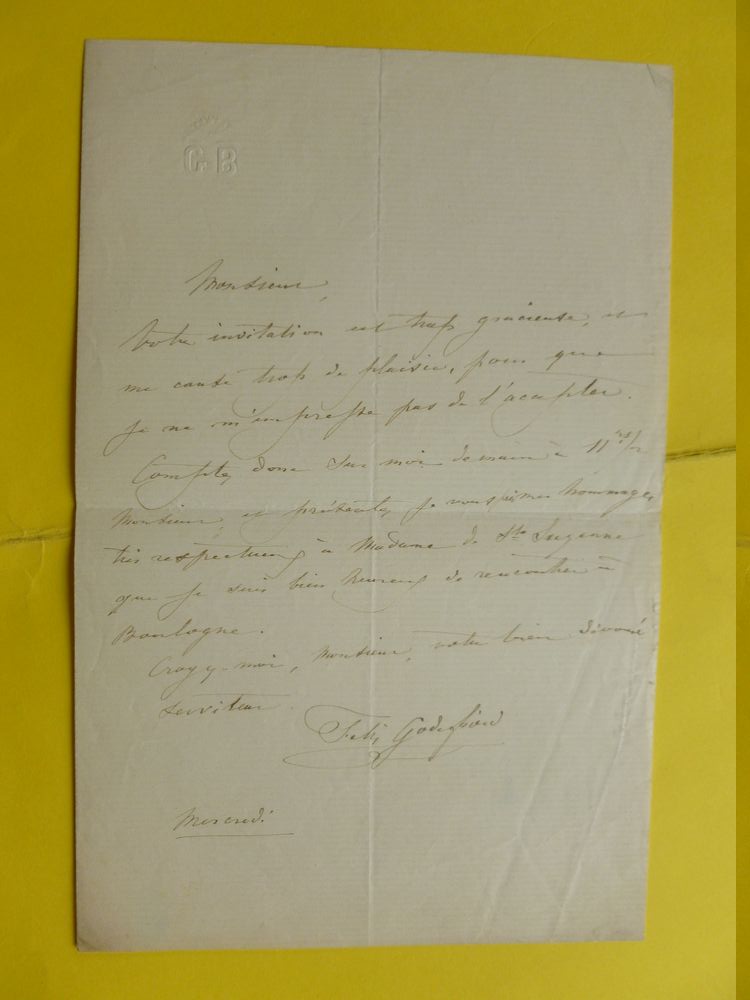 G. B
Monsieur,
Votre invitation est trop gracieuse, et
me cause trop de plaisir, pour que
je ne m'empresse pas de l'accepter.
Comptez donc sur moi demain à 11 hs 1/2
Monsieur, et présentez, je vous prie mes hommages
très respectueux à Madame de Ste Suzanne
que je suis bien heureux de rencontrer à
Boulogne.
Croyez-moi, Monsieur, votre bien dévoué
serviteur.
Felix Godefroid
Mercredi